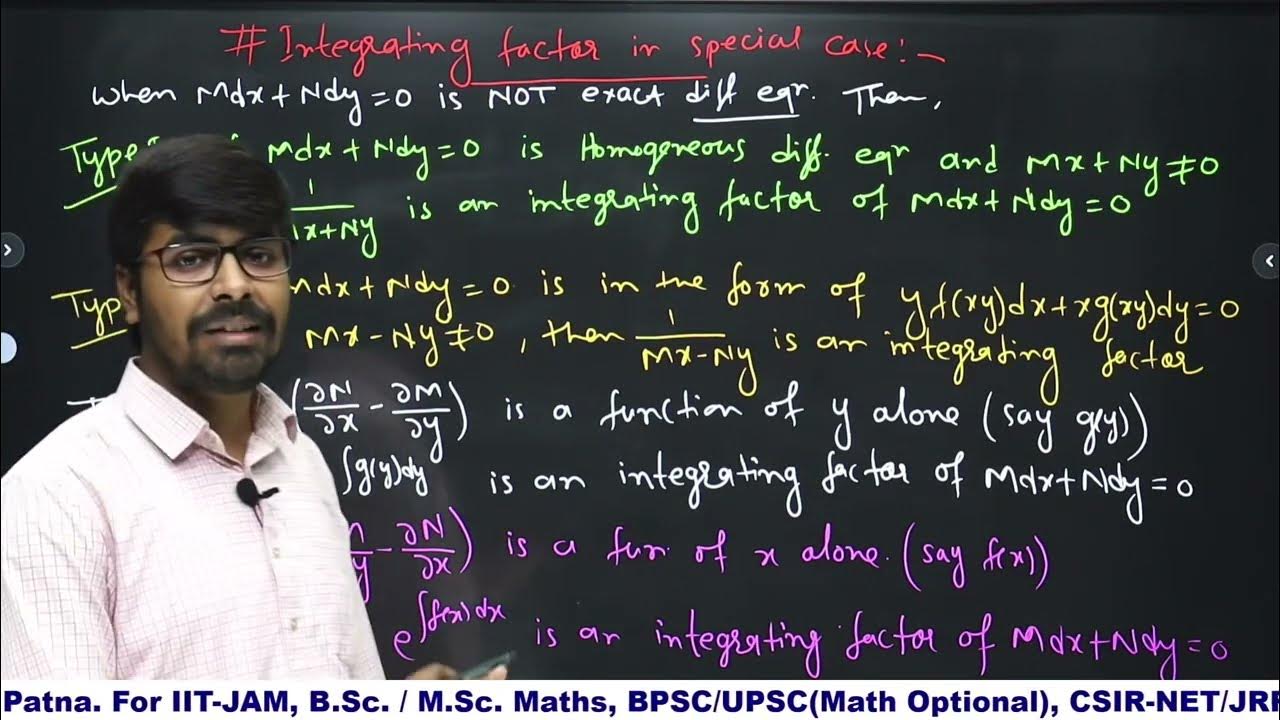 # Integrating factor in special case:-
When Mdx+Ndy=0 is NOT exact diff eqn. Then,
Type Mdx+Ndy=0 is Homogeneous diff. eqn and Mx+Ny≠0
1/Mx+Ny is an integrating factor of Mdx+Ndy=0
Type Mdx+Ndy=0 is in the form of yf(xy)dx+xg(xy)dy=0
Mx-Ny≠0, then 1/Mx-Ny is an integrating factor
(∂N/∂x - ∂M/∂y) is a function of y alone (say g(y))
∫g(y)dy is an integrating factor of Mdx+Ndy=0
- ∂N/∂x) is a fun. of x alone. (say f(x))
e^∫f(x)dx is an integrating factor of Mdx+Ndy=0
Patna. For IIT-JAM, B.Sc. / M.Sc. Maths, BPSC/UPSC(Math Optional), CSIR-NET/JRF